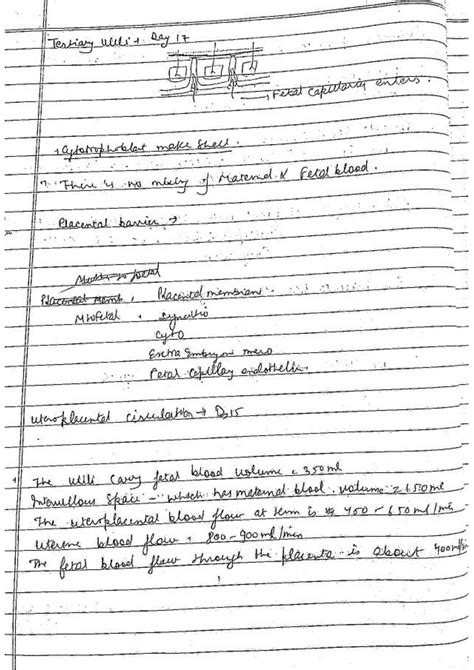 Tertiary villi → Day 17
Fetal capillaries enters.
→ Cytotrophoblast make shell.
There is no mixing of Maternal & Fetal blood.
Placental barrier →
fetal
Placental Memb, Placental membrane.
Syncitio
Cyto
Extra Embryon meso
Fetal capillary endotheli
Uteroplacental circulation → D15
The villi carry fetal blood volume = 350ml
Intervillous space - which has maternal blood. volume 150ml
The uteroplacental blood flow at term is 450 - 650 ml/min
Uterine blood flow = 800-900ml/min
The fetal blood flow through the placenta is about 400ml/min